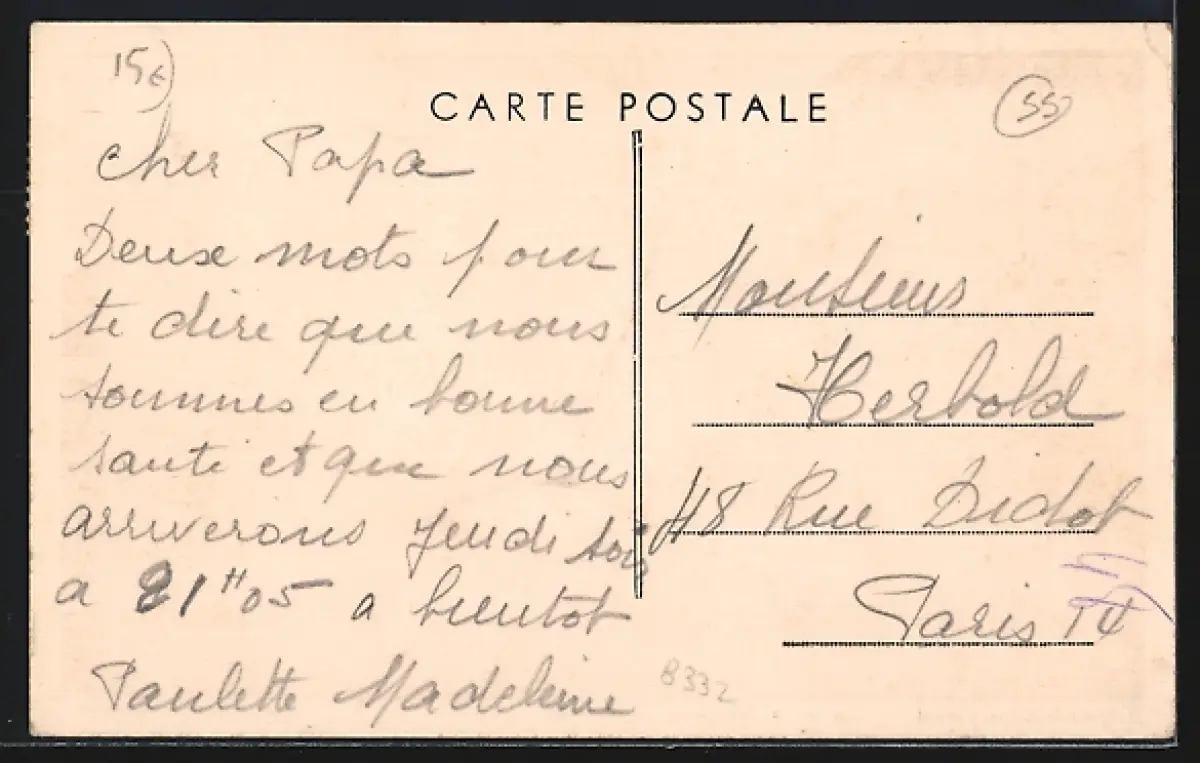 15€
CARTE POSTALE
55
cher Papa
Deux mots pour
te dire que nous
sommes en bonne
santé et que nous
arriverons Jeudi soir
a 21H05 a bientot
Paulette Madeleine
Monsieur
Herbold
48 Rue Didot
Paris 14
B332